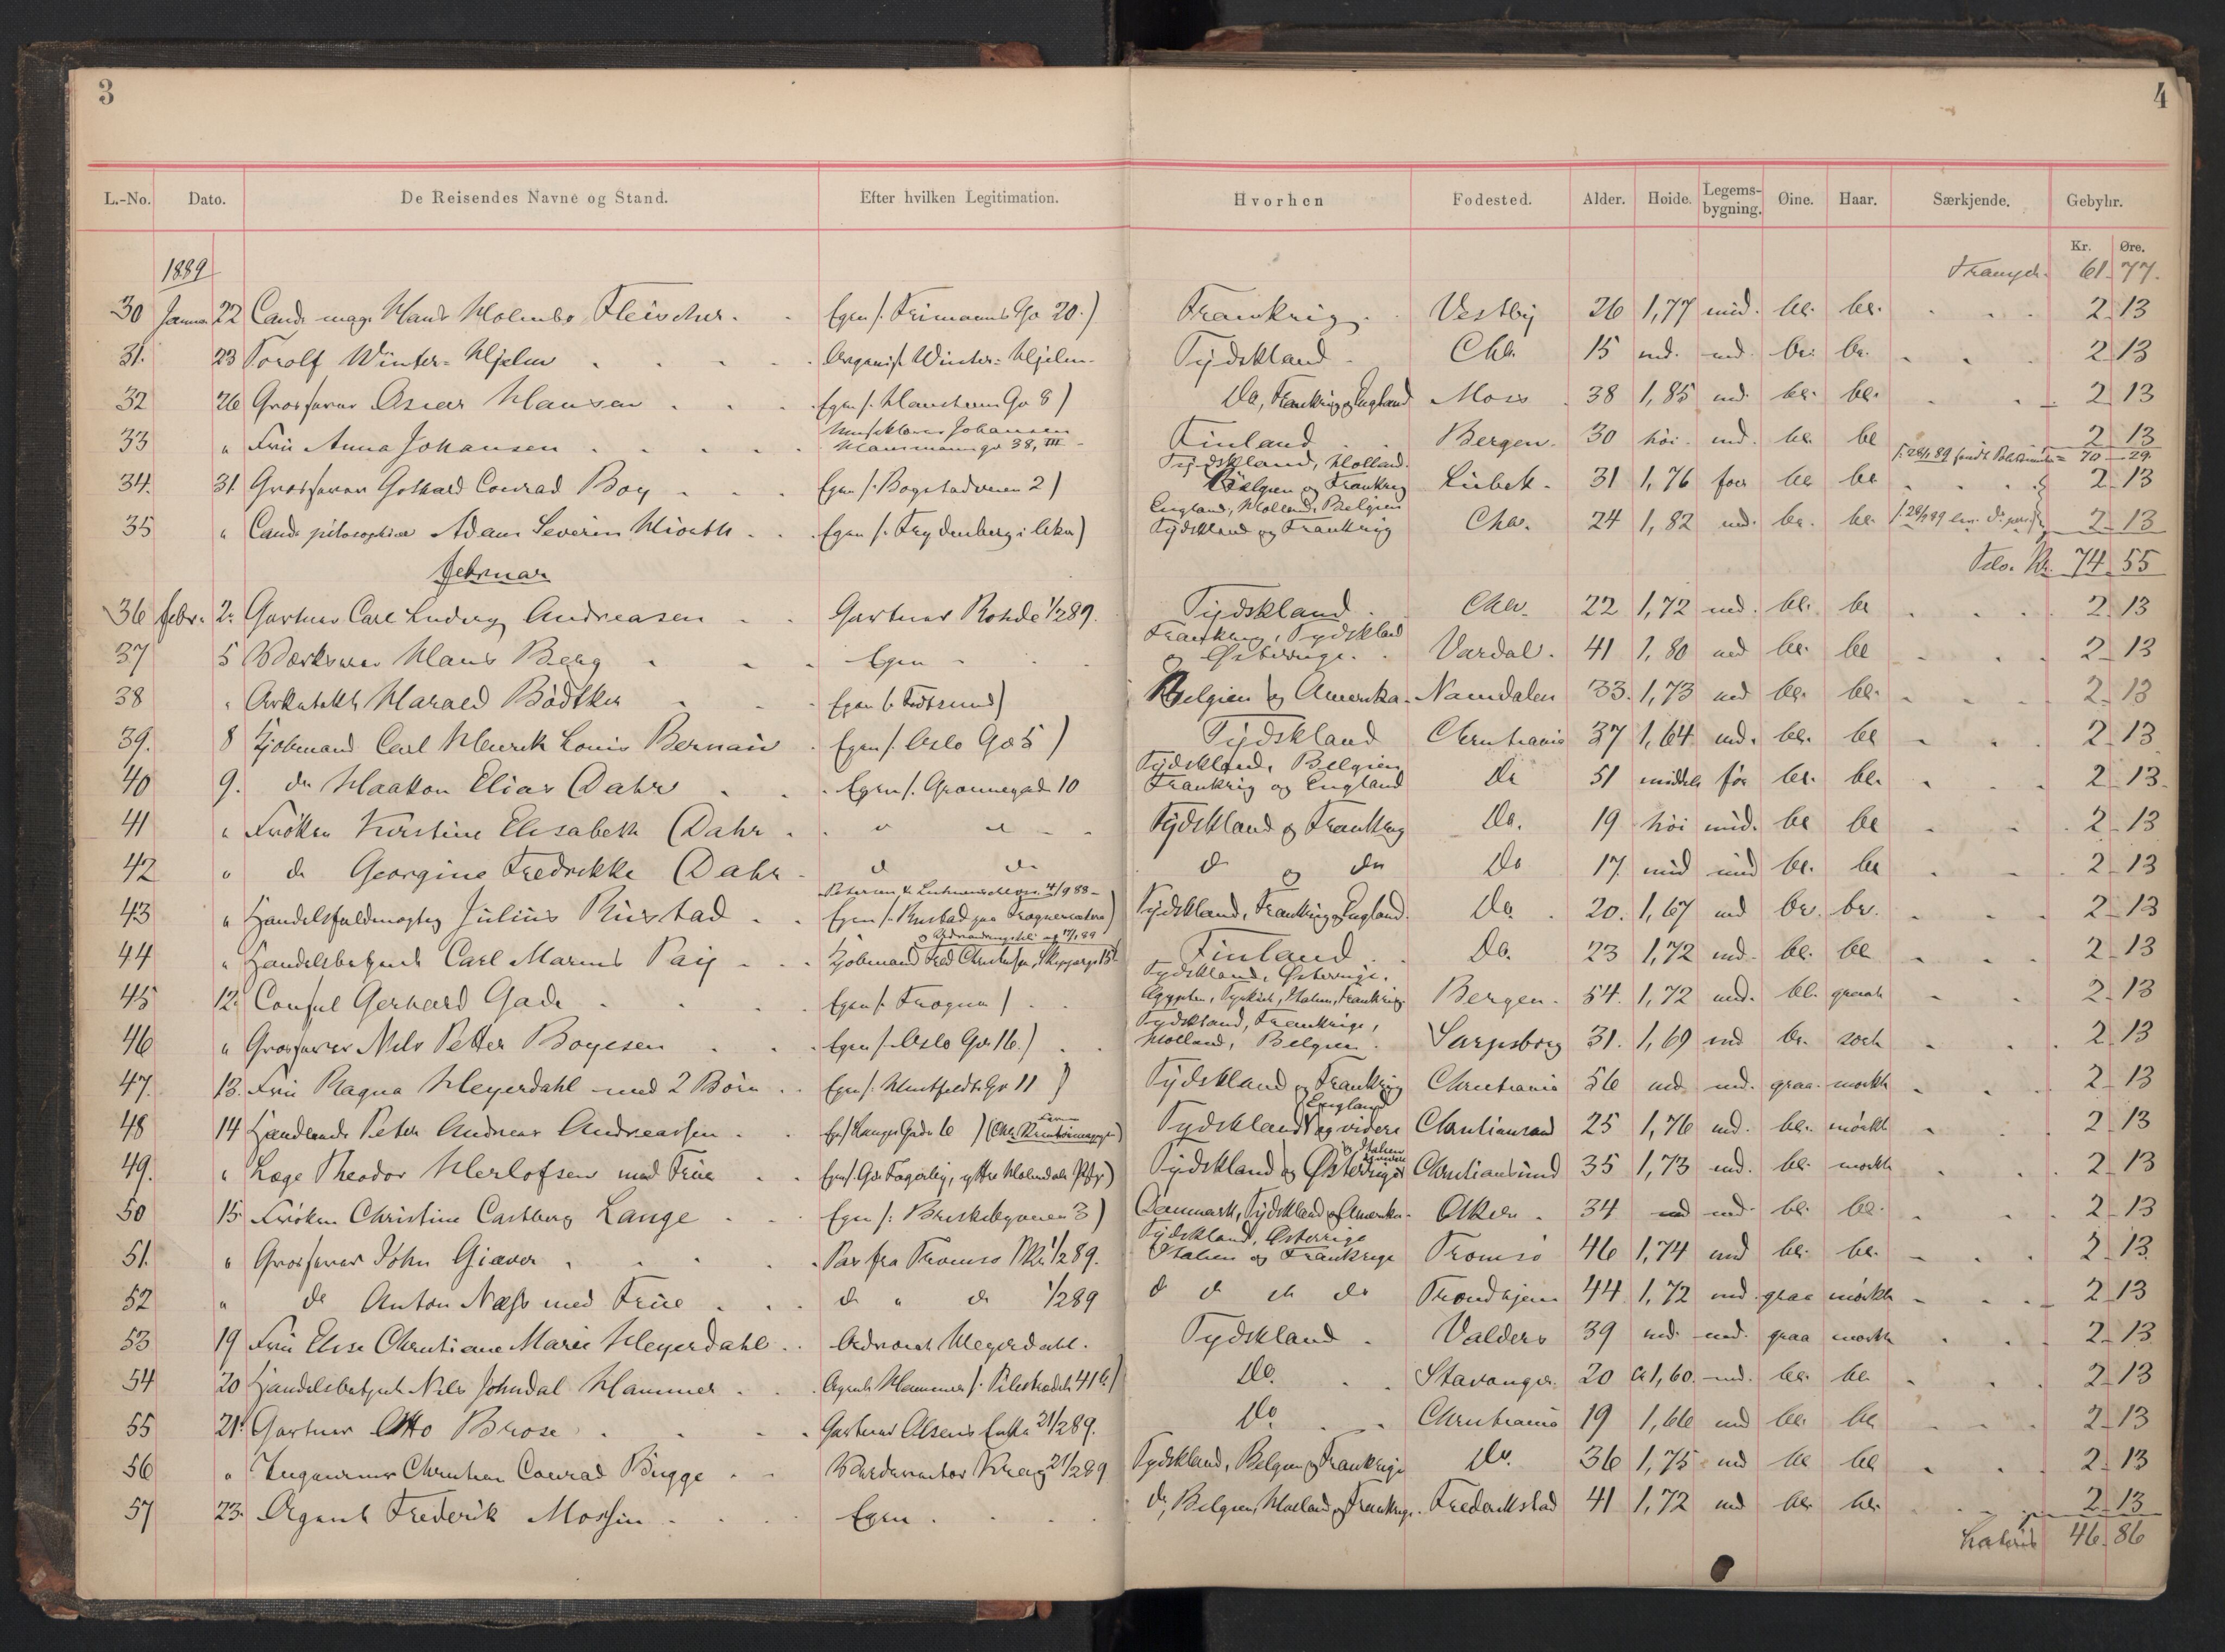 3
4
L.-No. Dato. De Reisendes Navne og Stand. Efter hvilken Legitimation. Hvorhen Fodested. Alder. Høide. Legems-bygning. Øine. Haar. Særkjende. Gebyhr.
Kr. Øre.
1889 Transp. 61. 77.
30 Januar 22 Cand. mag. Hans Holmbo Fleischer. Egen /: Frimanns Ga 20.) Frankrig. Vestby 26 1,77 mid. bl. bl. 2 13
31. 23 Torolf Winter-Hjelm Organist Winter-Hjelm. Tydskland. Chr. 15 md. md. br. br. 2 13
32 26 Grosserer Oscar Hansen Egen /: Hausmanns Ga 8) Do, Frankrig og England Moss 38 1,85 md. bl. bl. 2 13
33 " Fru Anna Johansen Johansen Hausmanns gd 38, III Finland Bergen. 30 høi. md. bl. bl 2 13
70 29
34. 31 Grosserer Gothard Conrad Boy Egen /: Bogstadveien 2) Tydskland, Holland. Belgien og Frankrig Lübek. 31 1,76 før bl bl 2 13
35 " Cand. philosophiæ Adam Severin Hiorth Egen /: Frydenberg i Aker) England, Holland, Belgien Tydskland og Frankrig Chr. 24 1,82 md. bl. bl. 2 13
Februar Tils. Kr. 74 55
36 febr. 2. Gartner Carl Ludvig Andreasen Gartner Rohde 1/2 89. Tydskland. Chr. 22 1,72 md. bl. bl 2 13
37 5 Værkseier Hans Berg Egen Frankrig, Tydskland og Østerrige. Vardal. 41 1,80 md bl. bl 2 13
38 " Arkitekt Harald Bødtker Egen Belgien og Amerika. Namdalen 33. 1,73 md bl. bl. 2 13
39. 8 Kjøbmand Carl Henrik Louis Bernais Egen /: Oslo Gd 5) Tydskland Christiania 37 1,64 md. bl. bl 2 13
40 9. do Haakon Elias Dahr Egen /: Grønnegade 10 Tydskland, Belgien Frankrig og England Do 51 middels før bl. bl. 2 13.
41 " Frøken Kirstine Elisabeth Dahr " " Tydskland og Frankrig Do. 19 høi mid. bl bl 2 13
42 " do Georgine Fredrikke Dahr do do do og do Do 17 mid mid bl. bl 2 13
43 " Handelsfuldmægtig Julius Rustad Egen /: Rustad paa Tydskland, Frankrig og England. Do. 20. 1,67 md br. br. 2 13
44 " Handelsbetjent Carl Marius Paij Kjøbmand Finland Do. 23 1,72 md. bl. bl 2 13
45 12. Consul Gerhard Gade Egen /: Frogner) Tydskland, Østerrige. Ægypten, Tyrkiet, Italien, Frankrig. Bergen. 54. 1,72 md. bl. graat 2 13
46 " Grosserer Nils Petter Boyesen Egen /: Oslo Gd 16.) Tydskland, Frankrige, Holland, Belgien. Sarpsborg 31. 1,69 md br. sort 2 13
47. 13. Fru Ragna Heyerdahl med 2 Børn Egen /: Huitfeldts Gd 11) Tydskland og Frankrig Christiania 56 md md. graa. mørkt 2 13
48 14 Handlende Peter Andreas Andreassen Egen/ Langes Gade 6) Tydskland England og videre Christiansand 25 1,76 md. bl. mørkt 2 13
49. " Læge Theodor Herlofsen med Frue Tydskland og Østerrige og Italien Christianssund 35 1,73 md. bl. mørkt 2 13
50 15. Frøken Christine Castberg Lange Egen /: Briskebyveien 3) Danmark, Tydskland og Amerika. Aker. 34 md md. bl. bl. 2 13
51. " Grosserer John Giæver Pas fra Tromsø 1/2 89. Tydskland, Østerrige Italien og Frankrige Tromsø 46 1,74 md bl. bl. 2 13.
52 " do Anton Næss med Frue do " do 1/2 89 do do do do Trondhjem 44. 1,72 md. graa mørkt 2 13
53 19 Fru Elise Christiane Marie Heyerdahl Advocat Heyerdahl. Tydskland. Valders 39 md. md. graa mørkt 2 13
54 20 Handelsbetjent Nils Johndal Hammer Agent Hammer /: Pilestrædet 41 b) Do. Stavanger. 20 ca 1,60. md. bl. bl. 2 13
55 21. Gartner Otto Brose Gartner Olsens Enke 21/2 89. Do. Christiania 19 1,66 md bl. bl 2 13
56 " Ingeniør Christian Conrad Bugge Krag 21/2 89 Tydskland, Belgien og Frankrige Do. 36 1,75 md bl bl 2 13
57 23. Agent Frederik Mossin Egen do, Belgien, Holland og Frankrige. Frederikstad 41 1,72 md bl. bl. 2 13
Lateris 46. 86